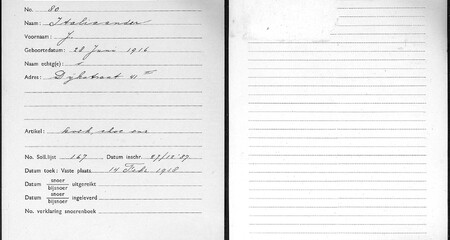 No. 80
Naam: Italiaander
Voornaam: J.
Geboortedatum: 28 Juni 1916
Naam echtg(e):
Adres: Dijkstraat 41 III
Artikel: koek, choc enz
No. Soll.lijst 167 Datum inschr. 27/12 '37
Datum toek: Vaste plaats 14 Febr. 1918
Datum snoer/bijsnoer uitgereikt
Datum snoer/bijsnoer ingeleverd
No. verklaring snoerenboek